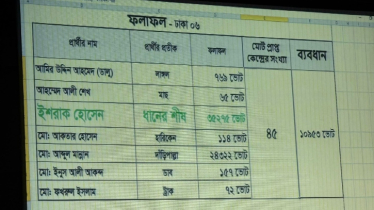 ফলাফল - ঢাকা ০৬
প্রার্থীর নাম প্রার্থীর প্রতীক ফলাফল মোট প্রাপ্ত কেন্দ্রের সংখ্যা ব্যবধান
আমির উদ্দিন আহমেদ (ডালু) লাঙ্গল ৭৬৯ ভোট
আহম্মেদ আলী শেখ মাছ ৬৫ ভোট
ইশরাক হোসেন ধানের শীষ ৩৫২৭৫ ভোট
মো: আকতার হোসেন হারিকেন ১১৪ ভোট ৪৫ ১০৯৫৩ ভোট
মো: আব্দুল মান্নান দাঁড়িপাল্লা ২৪৩২২ ভোট
মো: ইনুস আলী আকন্দ ডাব ১৫৭ ভোট
মো: ফখরুল ইসলাম ট্রাক ৭২ ভোট